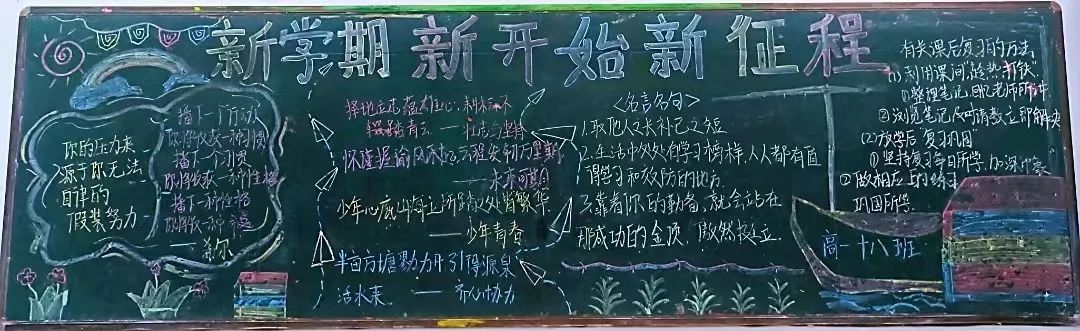 新学期新开始新征程
你的压力来
源于你无法
自律的
假装努力
播下一个行动
你将收获一种习惯
播下一个习惯
你将收获一种性格
播下一种性格
你将收获一种幸福
择地立志
——壮志与坚持
怀瑾握瑜风禾起
——未来可期
少年心
处皆繁华
——少年青春
半亩方塘勠力开 引得源泉
活水来 —— 齐心协力
<名言名句>
1.取他人之长补己之短
2.生活中处处有学习榜样,人人都有值
得学习和效仿的地方
3.靠着你的勤奋,就会站在
那成功的金顶,傲然挺立.
有关课后复习的方法
(1)利用课间"趁热打铁"
①整理笔记,回忆老师所讲
②浏览笔记,及时请教立即解决
(2)放学后"复习巩固"
①坚持复习每日所学,加深印象
②做相应上的练习
巩固所学
高一十八班